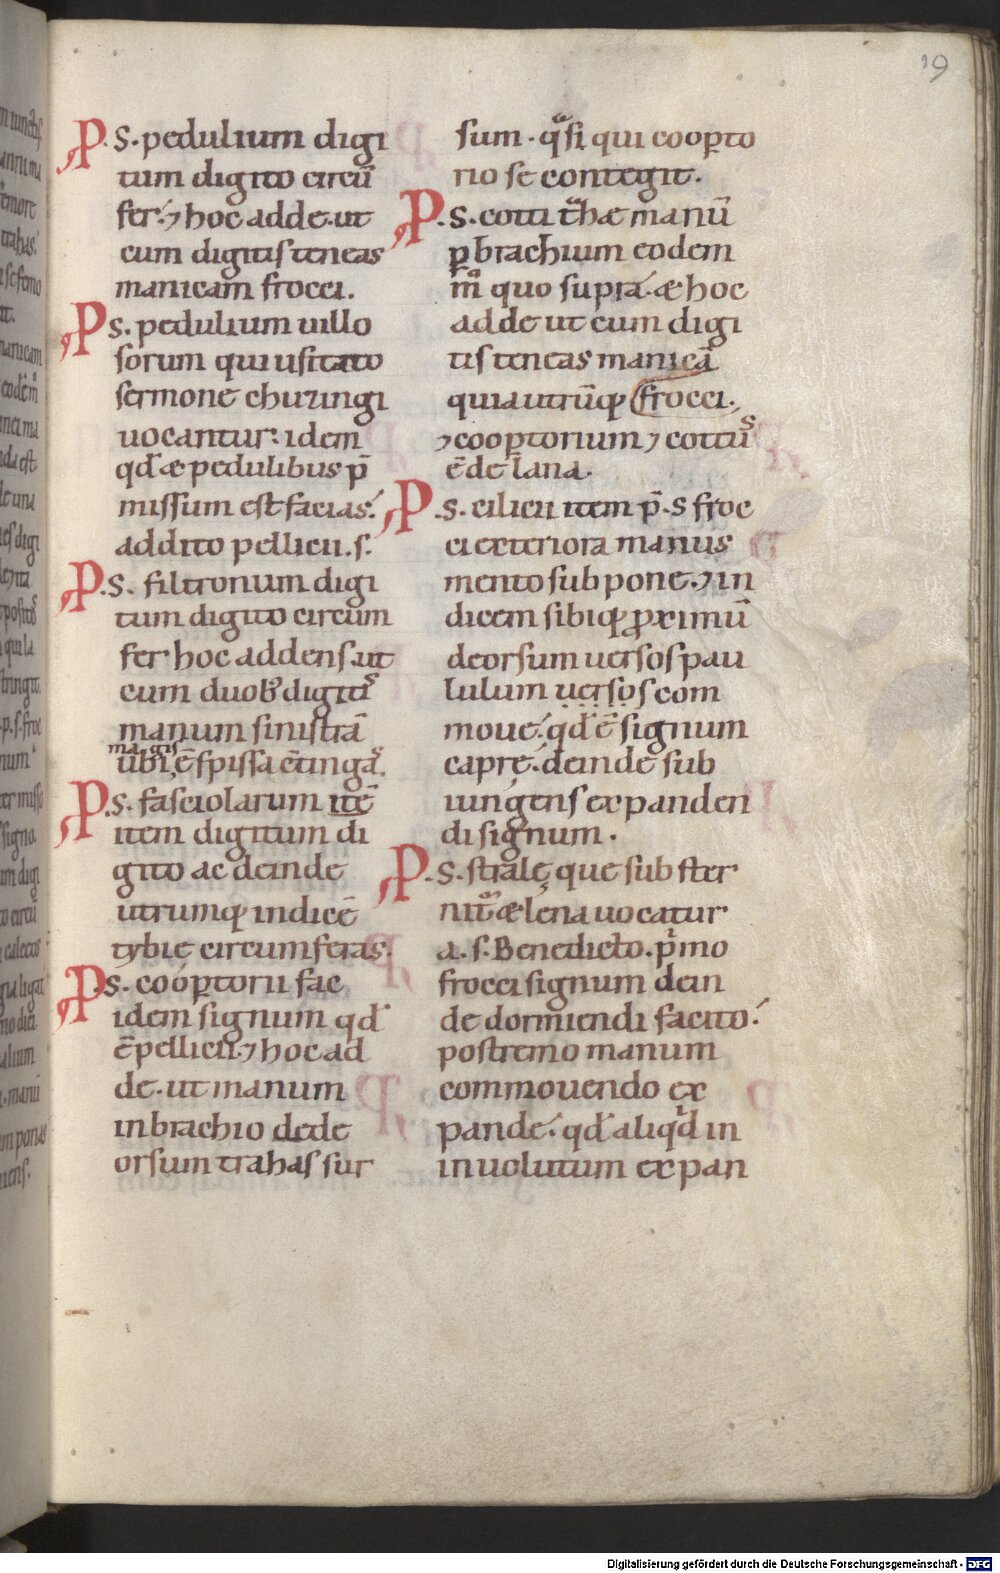 19
P. S. pedulium digi
tum digito circū
fer. ⁊ hoc adde. ut
cum digitis teneas
manicam frocci.
P S. pedulium uillo
sorum qui usitato
sermone churingi
uocantur: idem
qđ æ pedulibus p̄
missum est facias.
addito pellicii. s.
P. S. filtronum digi
tum digito circum
fer hoc addens. ut
cum duob; digitis
manum sinistrā
magis
ubi ē spissa ctingas.
P. S. fasciolarum itē
item digitum di
gito ac deinde
utrumq; indicē
tybię circumferas.
P. S. cooptorii fac
idem signum qđ
ē pellicii. ⁊ hoc ad
de. ut manum
in brachio dede
orsum trahas sur
sum. q̄si qui coopto
rio se contegit.
P. S. cotti t̄hæ manū
p brachium eodem
m̊ quo supra. æ hoc
adde ut cum digi
tis teneas manicā
quia utrūq; frocci.
⁊ cooptorium ⁊ cottus
ē de lana.
P. S. cilicii item p̄. S froc
ci exteriora manus
mento subpone. ⁊ in
dicem sibiq; proximū
deorsum uersos pau
lulum uersos com
moue. qđ ē signum
caprę. deinde sub
iungens expanden
di signum.
P. S. stralę que subster
nit̄ æ lena uocatur
a. s. Benedicto. p̄mo
frocci signum dein
de dormiendi facito.
postremo manum
commouendo ex
pande. qđ aliqd in
inuolutum expan
Digitalisierung gefördert durch die Deutsche Forschungsgemeinschaft - DFG